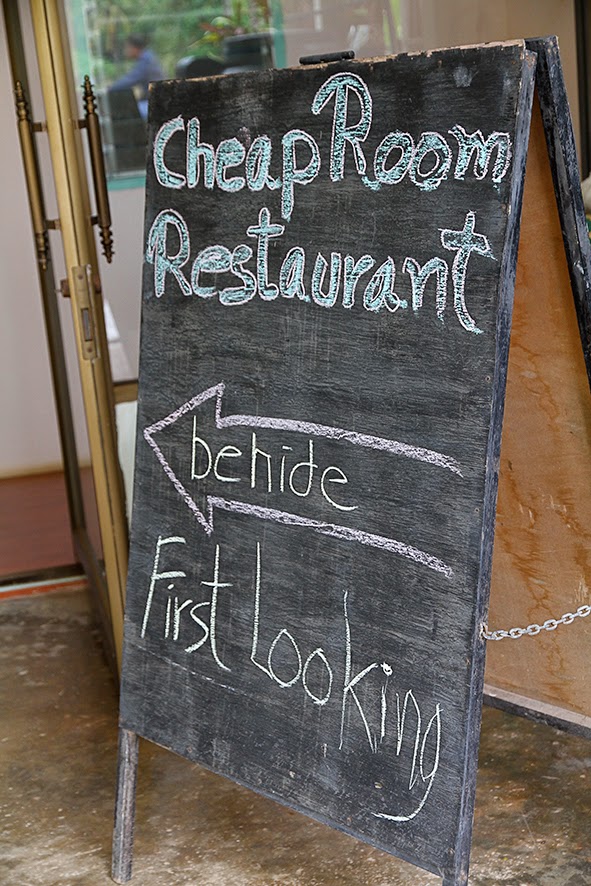 Cheap Room
Restaurant
behide
First Looking